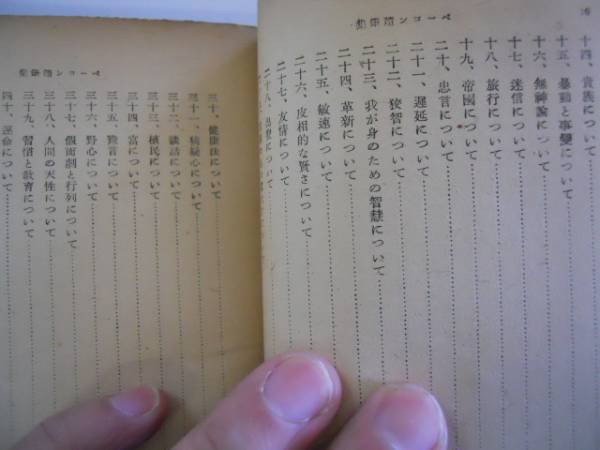 ベーコン随筆集
十四、貴族について
十五、暴動と事變について
十六、無神論について
十七、迷信について
十八、旅行について
十九、帝國について
二十、忠言について
二十一、遲延について
二十二、狡智について
二十三、我が身のための智慧について
二十四、革新について
二十五、敏速について
二十六、皮相的な賢さについて
二十七、友情について
二十八、出費について
ベーコン随筆集
三十、健康法について
三十一、猜疑心について
三十二、談話について
三十三、植民について
三十四、富について
三十五、豫言について
三十六、野心について
三十七、假面劇と行列について
三十八、人間の天性について
三十九、習慣と敎育について
四十、運命について